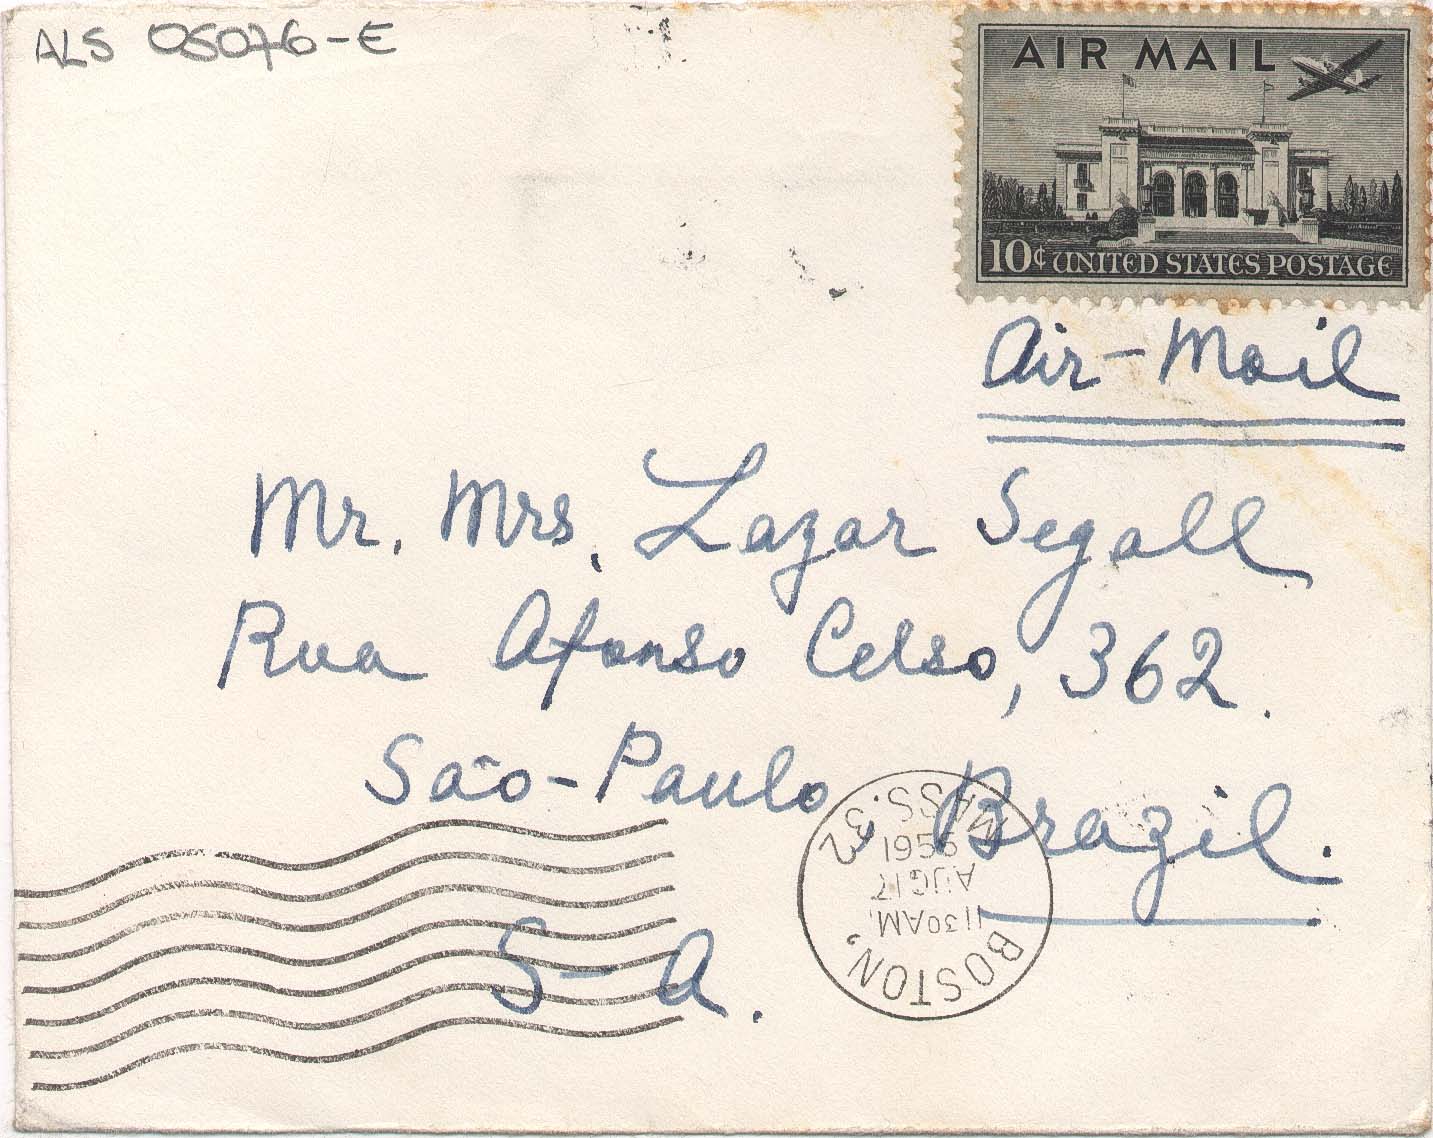 ALS 05076-E
AIR MAIL
10¢ UNITED STATES POSTAGE
Air-Mail
Mr. Mrs. Lazar Segall
Rua Afonso Celso, 362.
São-Paulo Brazil.
S-A.
BOSTON, MASS. 32
11 30 AM
AUG 17
1956